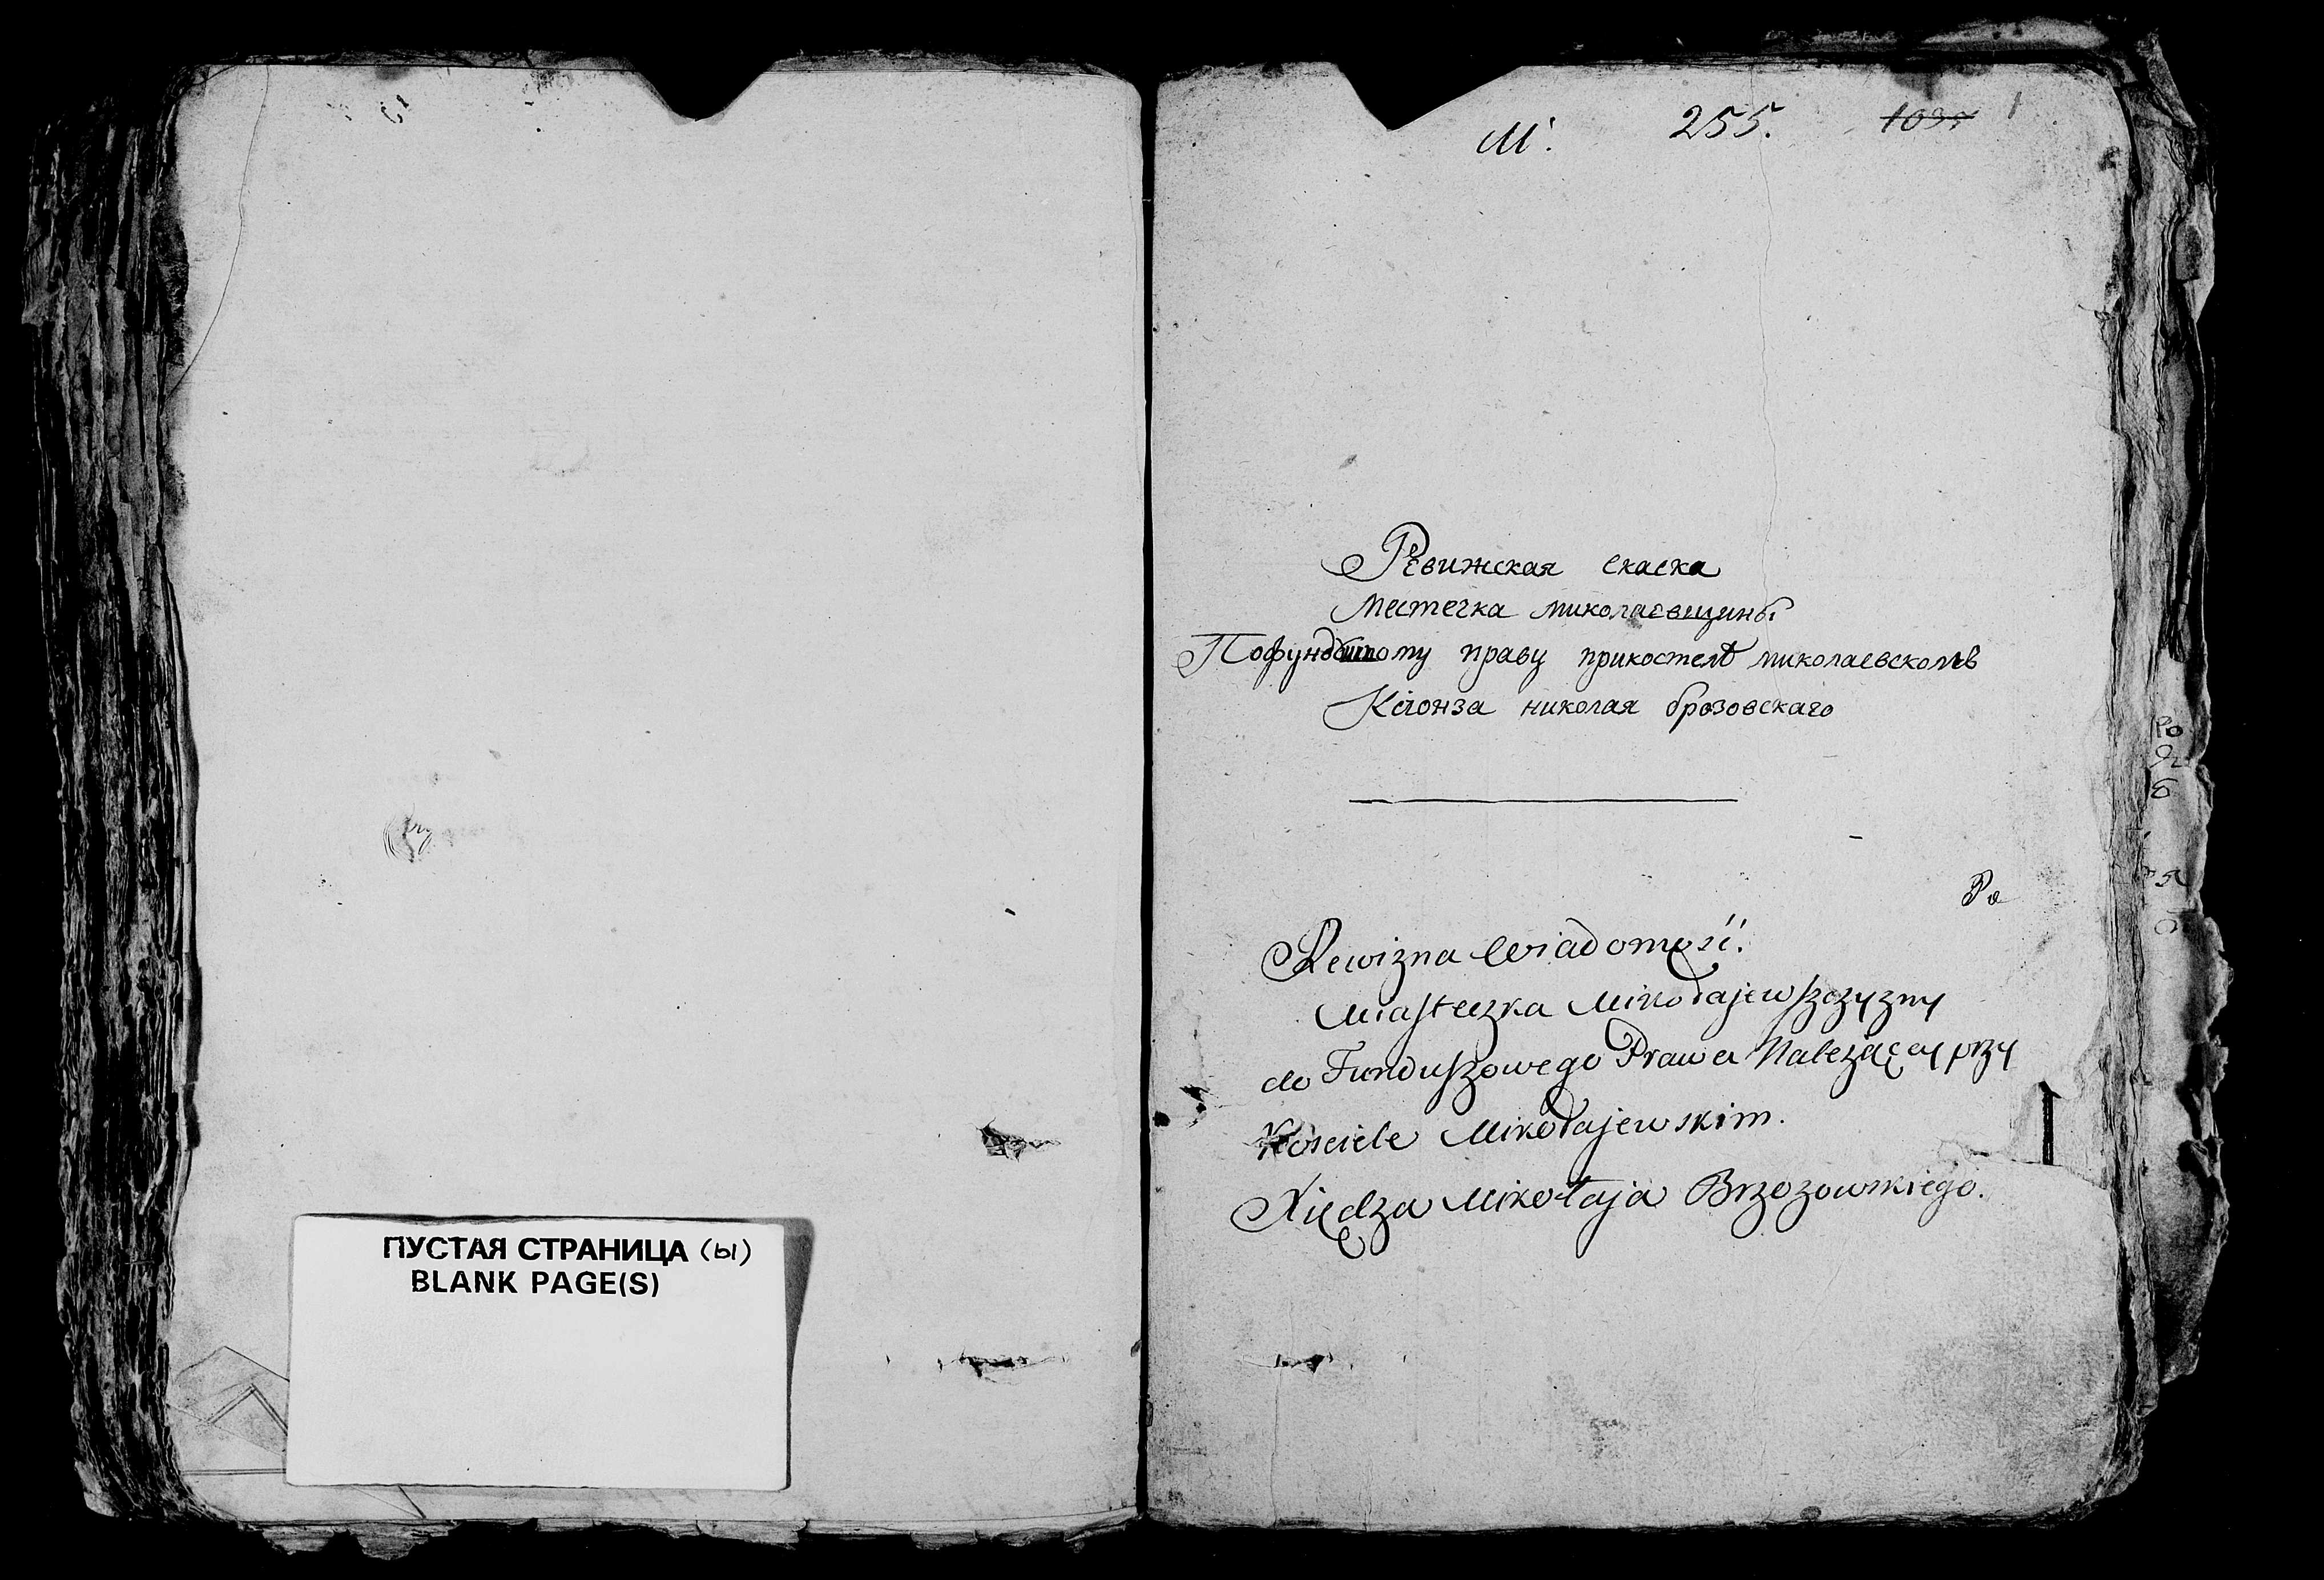 ПУСТАЯ СТРАНИЦА (ы)
BLANK PAGE(S)
М. 255. 1
Ревижская скаска
местечка миколаевщины
праву прикостелѣ миколаевскомъ
Ксіонза николая брозовскаго
Po
Rewizna Wiadomość.
Miasteczka Mikołajewszczyzny
do Funduszowego Prawa Należącey przy
Kościele Mikołajewskim.
Xiędza Mikołaja Brzozowskiego.